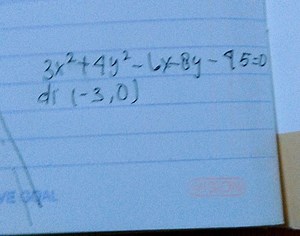 3x²+4y²-6x-8y-45=0
di (-3,0)
VE GOAL